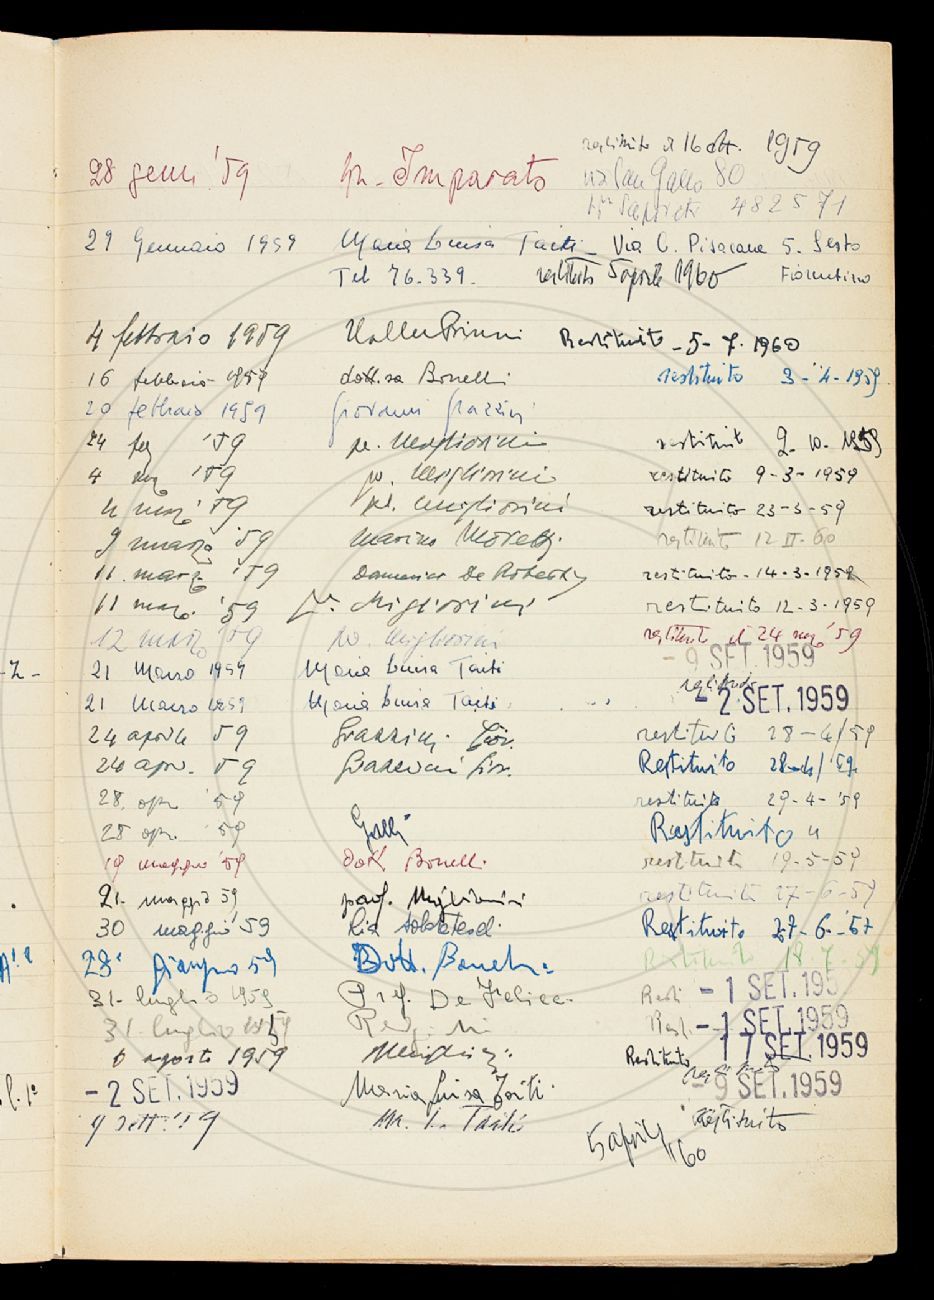 restituito il 16 ott. 1959
28 genn. '59 Imparato
via San Gallo 80
482571
29 Gennaio 1959 Maria Luisa Taiti - Via C. Pisacane 5. Sesto
Tel 76.339. restituito 5 aprile 1960 Fiorentino
4 febbraio 1959 Restituito - 5 - 7. 1960
16 febbraio 1959 dott.sa Bonelli restituito 3-4-1959
20 febbraio 1959 Giovanni Grazzini
24 '59 Migliorini restituito 9. 10. 1959
4 '59 Migliorini restituito 9-3-1959
'59 Migliorini restituito 23-3-59
9 marzo '59 Marino Moretti restituito 12 II-60
11. marzo '59 Domenico De Robertis restituito - 14-3-1959
11 mar. '59 Migliorini restituito 12-3-1959
12 marzo '59 Migliorini restituito il 24 '59
- Z - 21 Marzo 1959 Maria Luisa Taiti - 9 SET. 1959
restituito
21 Marzo 1959 Maria Luisa Taiti - 2 SET. 1959
24 aprile 59 Grazzini restituito 28-4/59
24 apr. 59 restituito 28-4/59
28. apr. '59 restituito 29-4-'59
28 apr. '59 Galli Restituito "
19 maggio '59 dott Bonelli restituito 19-5-59
21- maggio 59 prof. Migliorini restituito 27-6-59
30 maggio '59 Restituito 27-6-'57
23 giugno 59 Dott. Bonelli Restituito 18-7-59
31- luglio 1959 Prof. De Felice - 1 SET. 195
31- luglio 1959 - 1 SET. 1959
agosto 1959 Restituito 17 SET. 1959
- 2 SET. 1959 Maria Luisa Taiti - 9 SET. 1959
sett. '59 M. L. Taiti Restituito
5 aprile '60